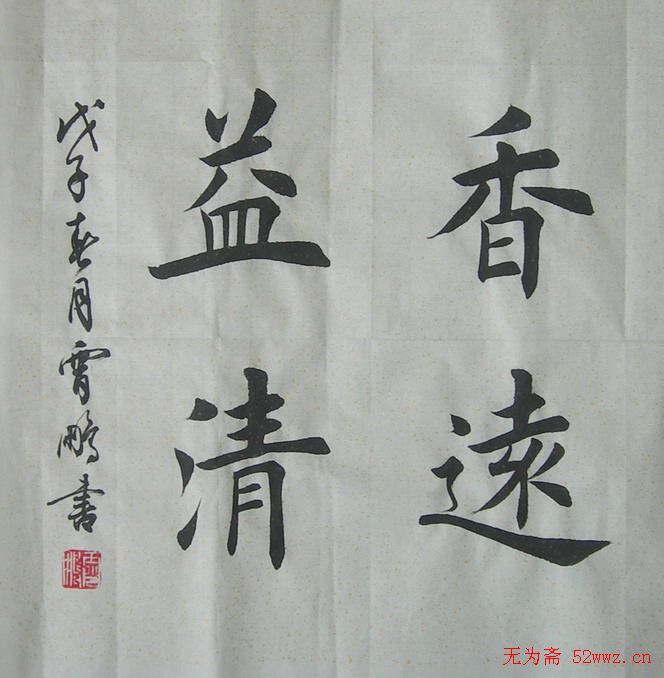 香遠
益清
戊子春月霄鵬書
无为斋 52wwz.cn